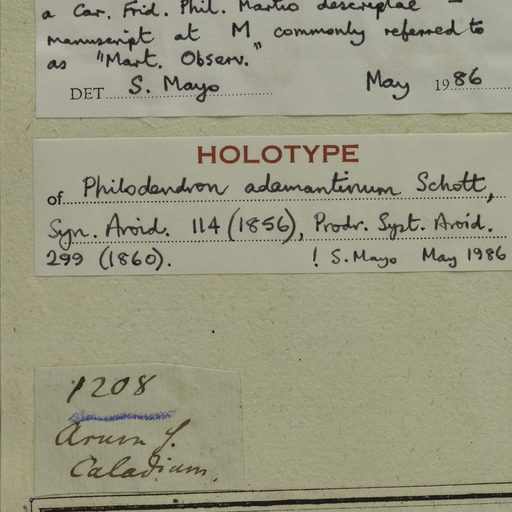 a Car. Frid. Phil. Martio descriptae —
manuscript at M, commonly referred to
as "Mart. Observ."
DET. S. Mayo May 1986
HOLOTYPE
of Philodendron adamantinum Schott,
Syn. Aroid. 114 (1856), Prodr. Syst. Aroid.
299 (1860). ! S. Mayo May 1986
1208
Arum f.
Caladium.